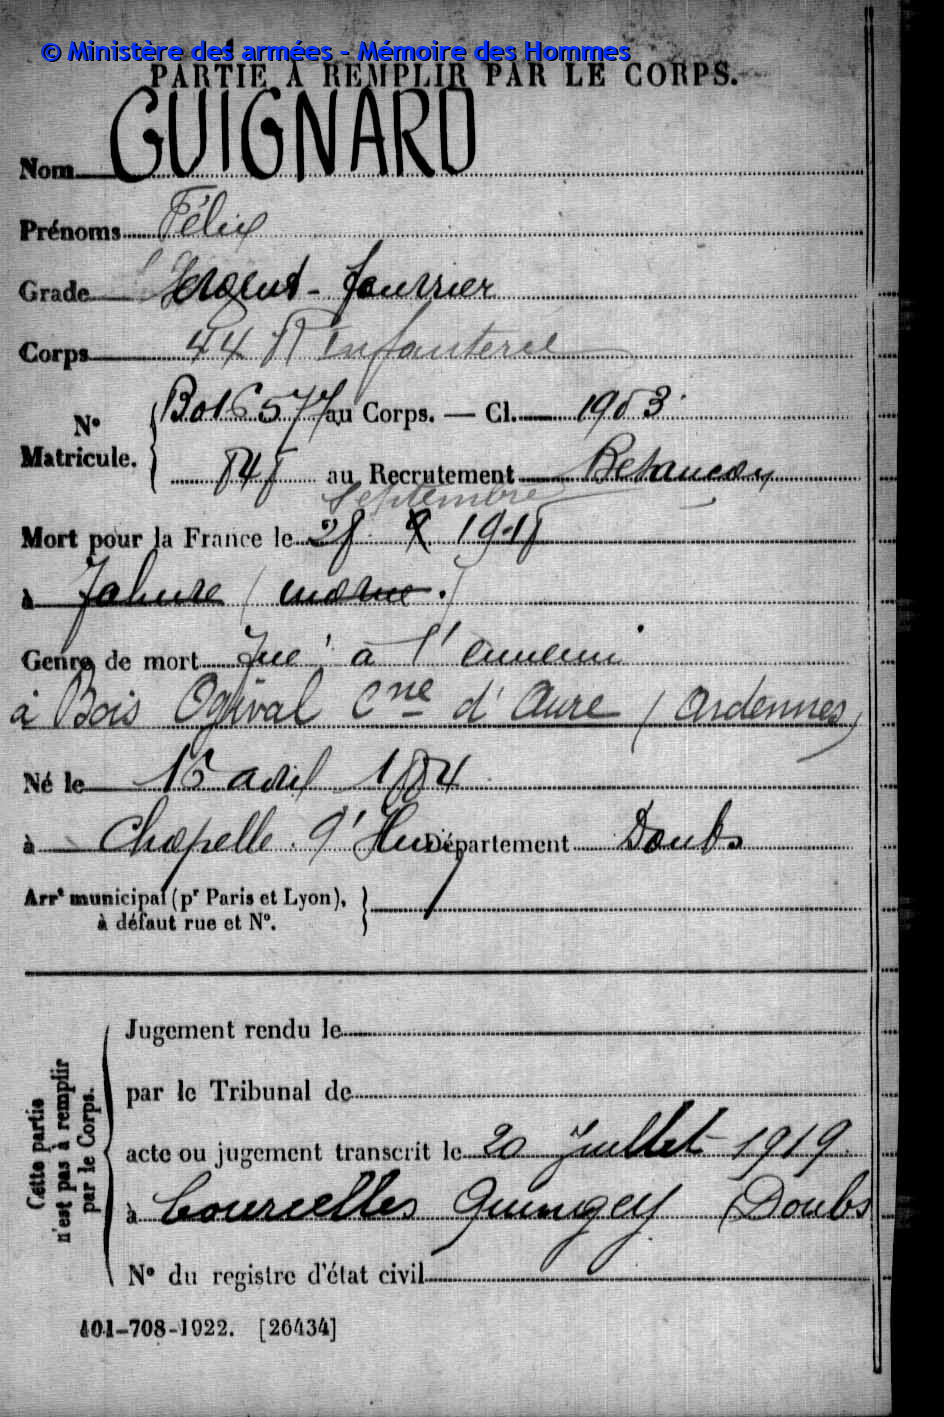 © Ministère des armées - Mémoire des Hommes
PARTIE À REMPLIR PAR LE CORPS.
Nom GUIGNARD
Prénoms Félix
Grade Sergent-fourrier
Corps 44 R Infanterie
N° Matricule. B016577 au Corps. — Cl. 1903
848 au Recrutement Besançon
septembre
Mort pour la France le 28 9 1918
à Tahure (marne.)
Genre de mort Tué à l'ennemi
à Bois Ogival Cne d'Aure (Ardennes)
Né le 15 avril 1884
à Chapelle d'Huin Département Doubs
Arrt municipal (pr Paris et Lyon),
à défaut rue et N°.
Jugement rendu le
par le Tribunal de
acte ou jugement transcrit le 20 Juillet 1919
à Courcelles Quingey (Doubs
N° du registre d'état civil
Cette partie
n'est pas à remplir
par le Corps.
401-708-1922. [26434]